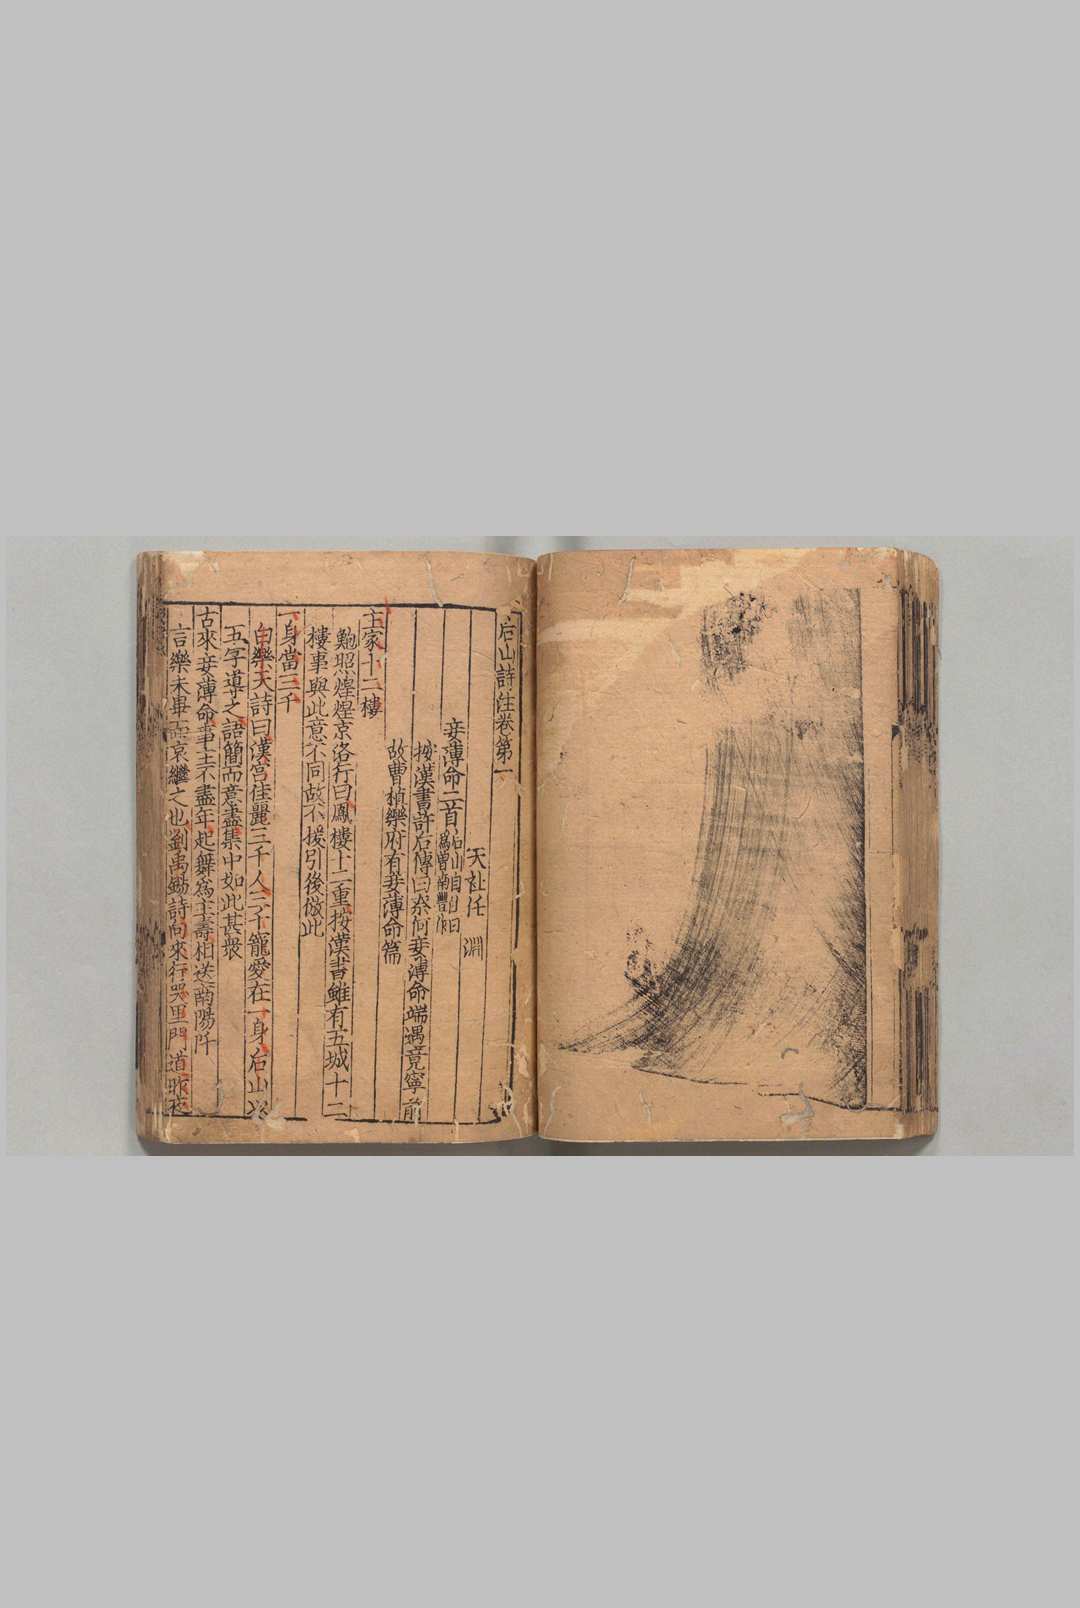 后山詩注卷第一
天社任 淵
妾薄命二首
后山自注曰
爲曽南豐作
按漢書許后傳曰柰何妾薄命端遇竟寧前
故曹植樂府有妾薄命篇
主家十二樓
鮑照煌煌京洛行曰鳳樓十二重按漢書雖有五城十二
樓事與此意不同故不援引後倣此
一身當三千
白樂天詩曰漢宮佳麗三千人三千寵愛在一身后山以
五字導之語簡而意盡集中如此甚衆
古來妾薄命事主不盡年起舞爲主壽相送南陽阡
言樂未畢而哀繼之也劉禹錫詩向來行哭里門道昨夜